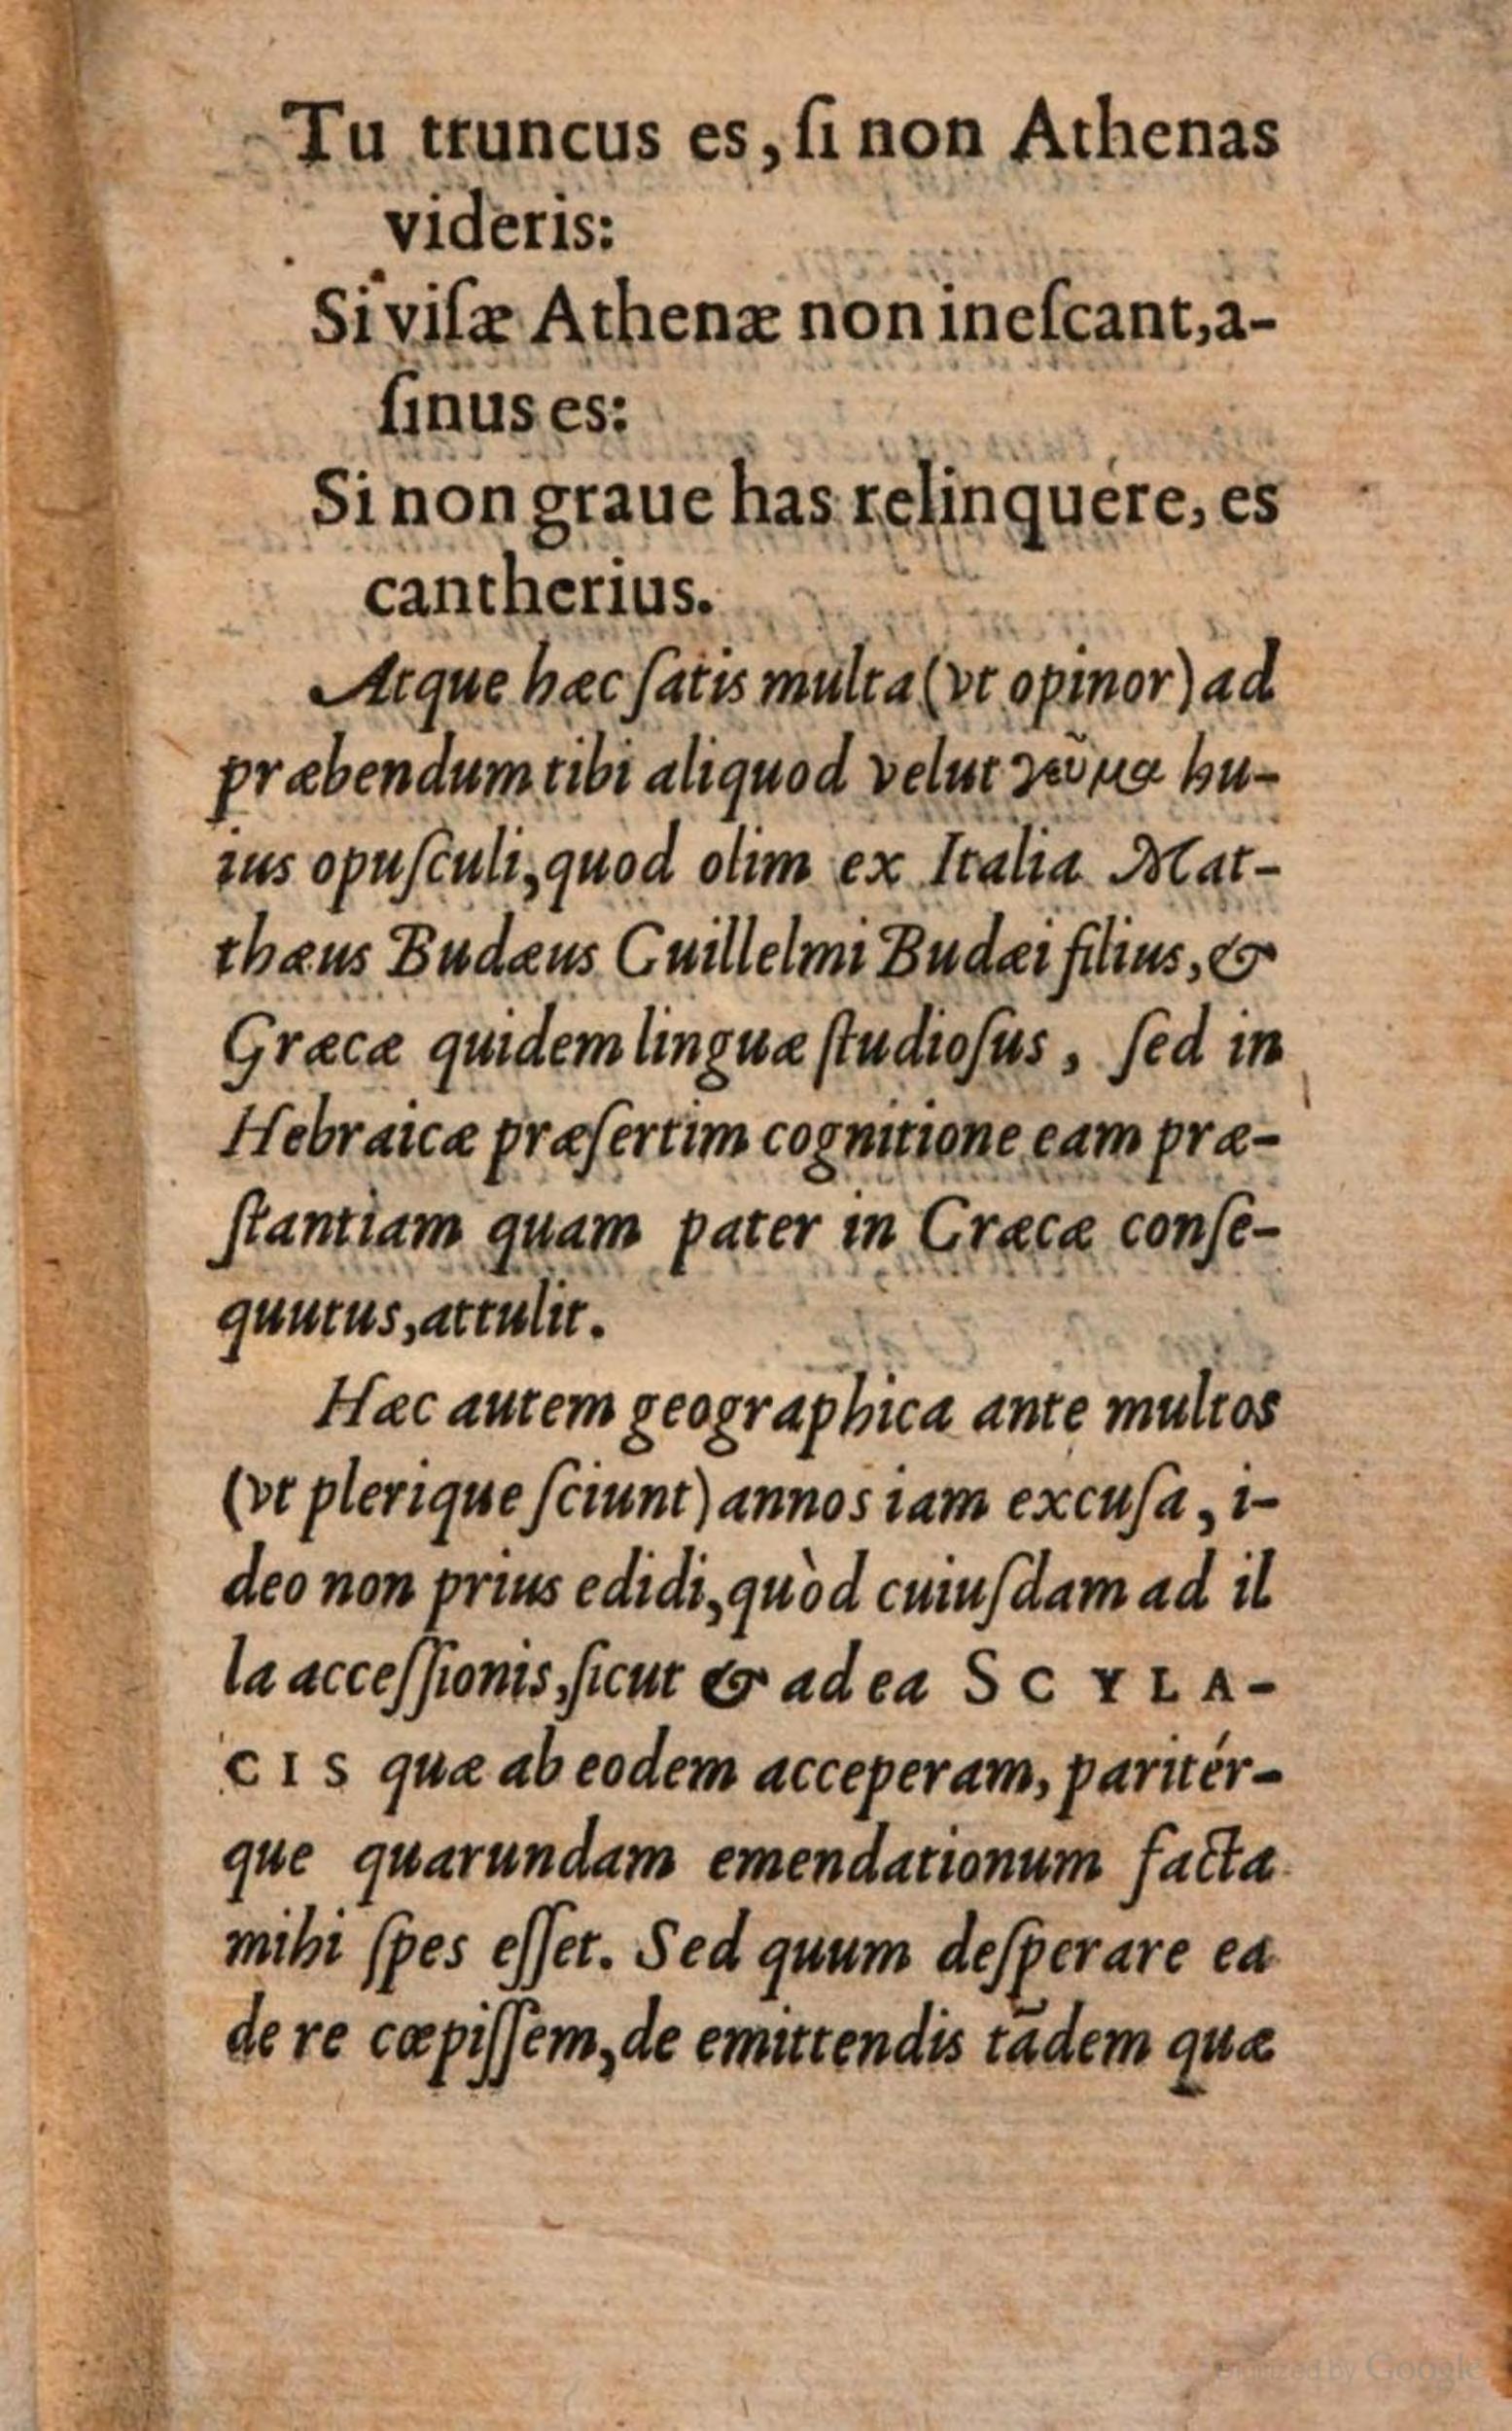 Tu truncus es, ſi non Athenas
videris:
Si viſæ Athenæ non ineſcant, a-
ſinus es:
Si non graue has relinquere, es
cantherius.
Atque hæc ſatis multa (vt opinor) ad
præbendum tibi aliquod velut γεῦμα hu-
ius opuſculi, quod olim ex Italia Mat-
thæus Budæus Guillelmi Budæi filius, &
Græcæ quidem linguæ ſtudioſus, ſed in
Hebraicæ præſertim cognitione eam præ-
ſtantiam quam pater in Græcæ conſe-
quutus, attulit.
Hæc autem geographica ante multos
(vt plerique ſciunt) annos iam excuſa, i-
deo non prius edidi, quòd cuiuſdam ad il
la acceſſionis, ſicut & ad ea SCYLA-
CIS quæ ab eodem acceperam, paritér-
que quarundam emendationum facta
mihi ſpes eſſet. Sed quum deſperare ea
de re cœpiſſem, de emittendis tādem quæ
Digitized by Google